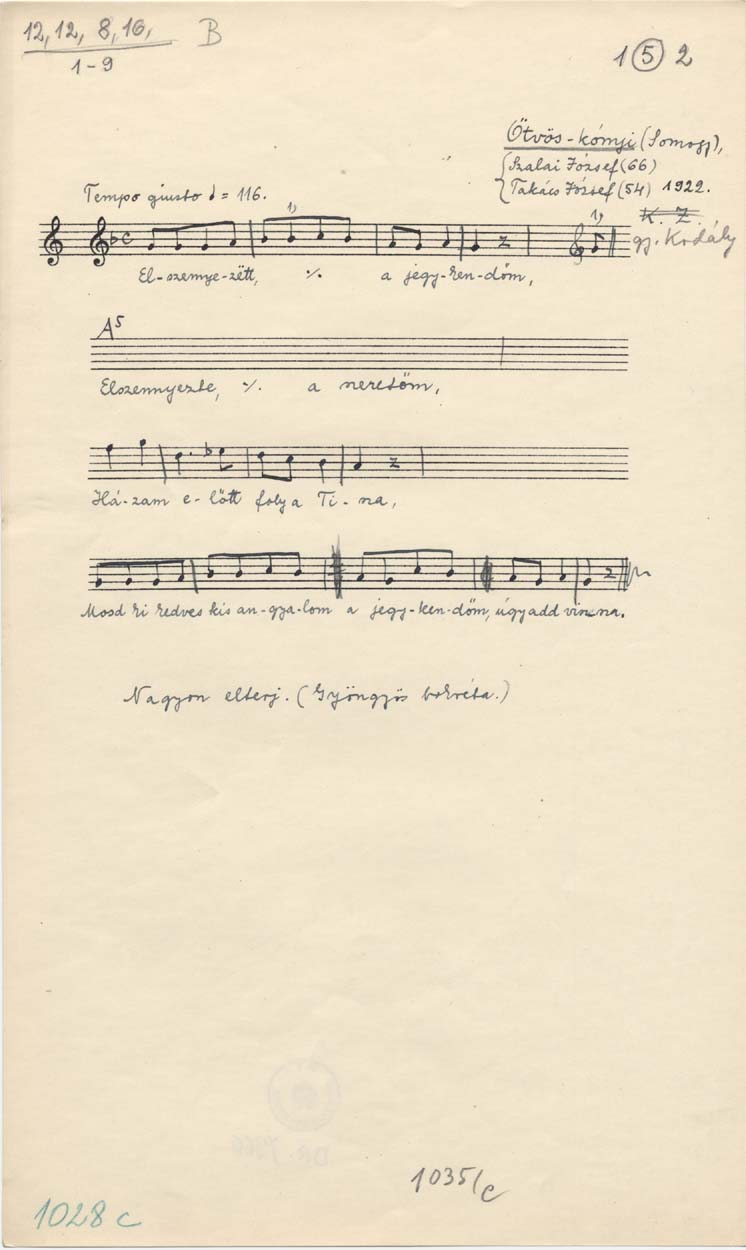 12, 12, 8, 16, B
1-9
1 5 2
Ötvös-kónyi (Somogy),
Szalai József (66)
Takács József (54) 1922.
K. Z.
gy. Kodály
Tempo giusto = 116.
1) 1)
El-szennye-zëtt, ·/. a jegy-ken-dőm,
A5
Elszennyezte, ·/. a szeretőm,
Há-zam e-lőtt foly a Ti-sza,
Mosd ki kedves kis an-gya-lom a jegy-ken-dőm, úgy add vissza.
Nagyon elterj. (Gyöngyös bokréta.)
1035/c
1028 c